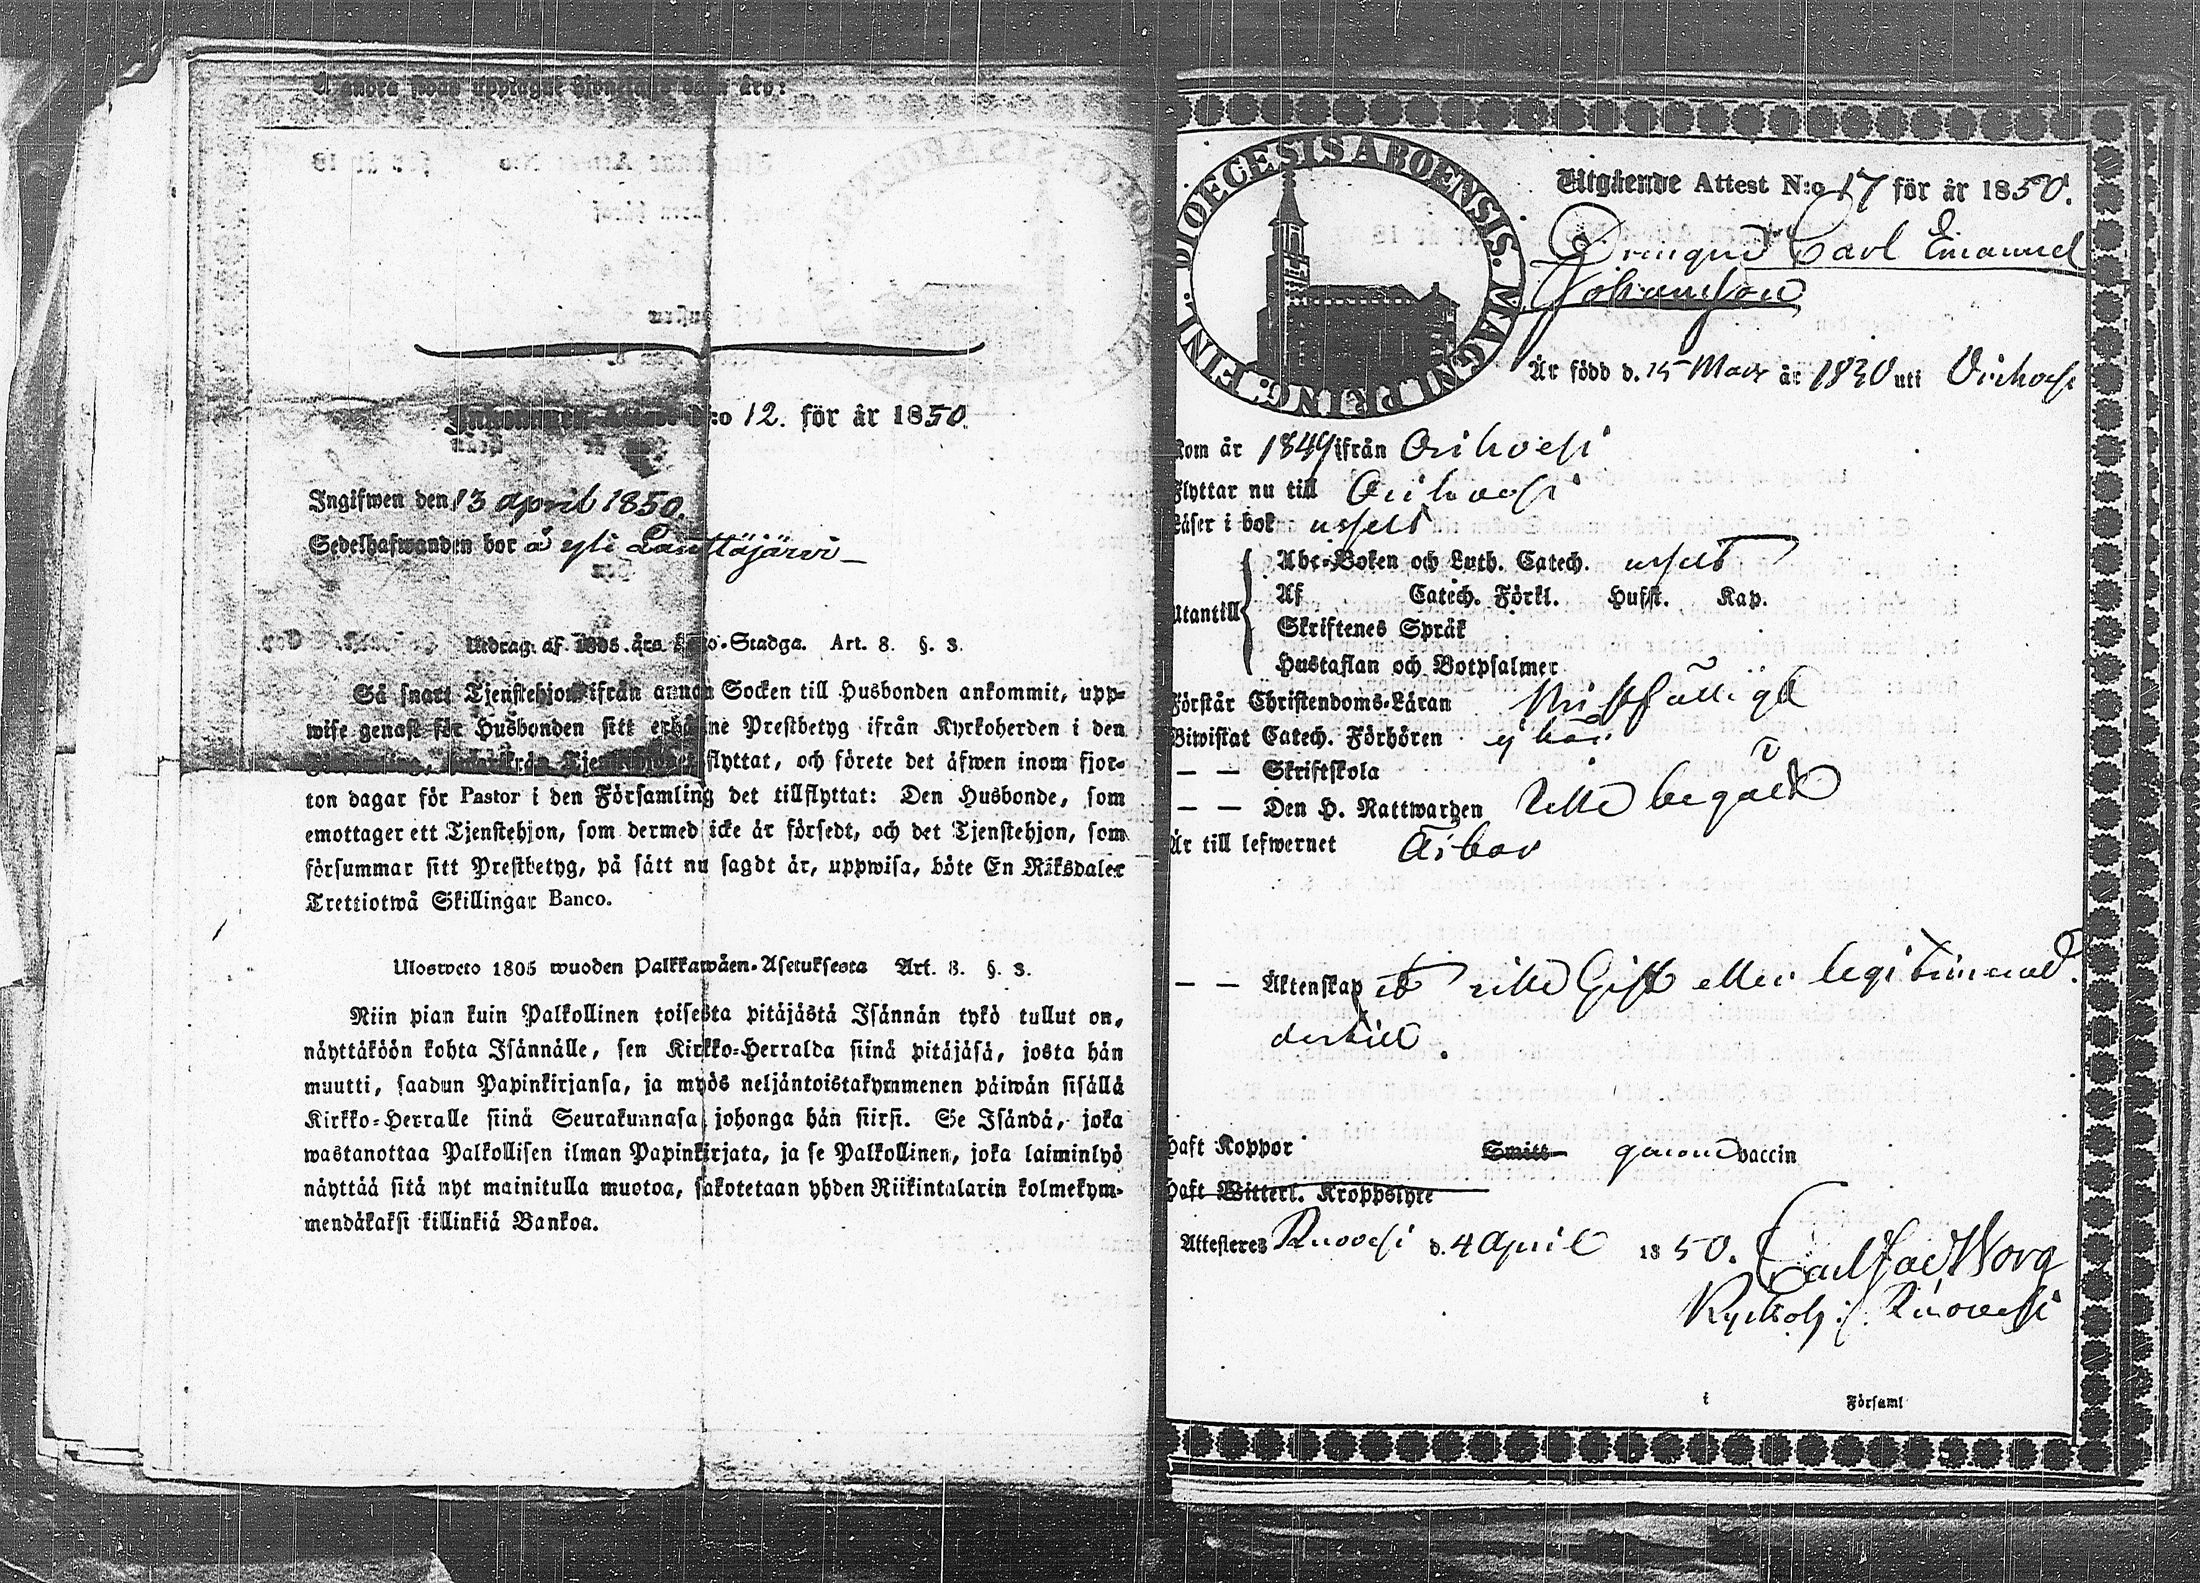 å andra sidan upptagne tjenstehjon
:o 12. för år 1850.
Ingifwen den 13 april 1850.
Sedelhafwanden bor å yli Lauttäjärvi
Utdrag af 1805 års Lego-Stadga. Art. 8. §. 3.
Så snart Tjenstehjon ifrån annan Socken till Husbonden ankommit, upp-
wise genast för Husbonden sitt erhållne Prestbetyg ifrån Kyrkoherden i den
Församling, hwarifrån Tjenstehjonet flyttat, och förete det äfwen inom fjor-
ton dagar för Pastor i den Församling det tillflyttat: Den Husbonde, som
emottager ett Tjenstehjon, som dermed icke är försedt, och det Tjenstehjon, som
försummar sitt Prestbetyg, på sätt nu sagdt är, uppwisa, böte En Riksdaler
Trettiotwå Skillingar Banco.
Ulosweto 1805 wuoden Palkkawäen-Asetuksesta Art. 8. §. 3.
Niin pian kuin Palkollinen toisesta pitäjästä Isännän tykö tullut on,
näyttäköön kohta Isännälle, sen Kirkko-Herralda siinä pitäjäsä, josta hän
muutti, saadun Papinkirjansa, ja myös neljäntoistakymmenen päiwän sisällä
Kirkko-Herralle siinä Seurakunnasa johonga hän siirsi. Se Isändä, joka
wastanottaa Palkollisen ilman Papinkirjata, ja se Palkollinen, joka laiminlyö
näyttää sitä nyt mainitulla muotoa, sakotetaan yhden Riikintalarin kolmekym-
mendäkaksi killinkiä Bankoa.
DIOECESIS ABOENSIS. MAGNI PRINC: FINL.
Utgående Attest N:o 17 för år 1850.
Drängen Carl Emanuel
Johansson
Är född d. 15 Mars år 1830 uti Orihvesi
kom år 1849 ifrån Orihvesi
Flyttar nu till Orihvesi
Läser i bok usselt
Utantill
Abc-Boken och Luth. Catech. usselt
Af Catech. Förkl. Husst. Kap.
Skriftenes Språk
Hustaflan och Botpsalmer
Förstår Christendoms-Läran
Biwistat Catech. Förhören ej här
— — Skriftskola
— — Den H. Nattwarden icke begått
Är till lefwernet ärbar
— — Äktenskap ej icke Gift eller legitimerad
dertill.
Haft Koppor Smitt- genom vaccin
Haft Witterl. Kroppslyte
Attesteres Ruovesi d. 4 April 1850.
Kyrkoh: i Ruovesi
i Församl